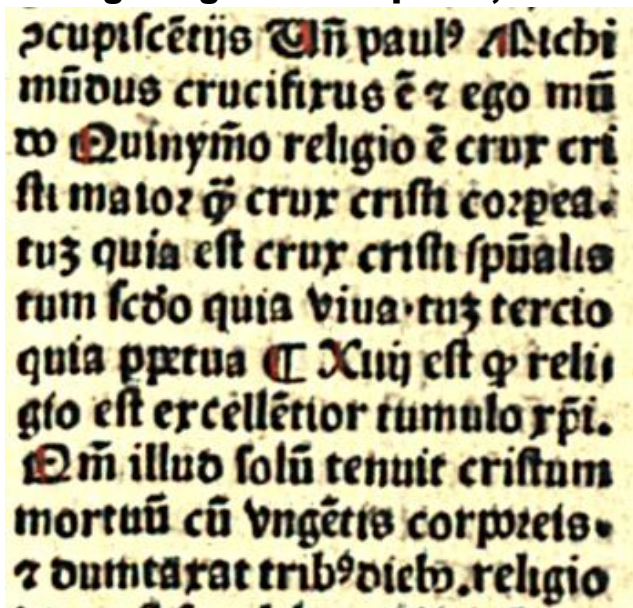 ꝯcupiſcētijs Uñ paulꝰ Michi
mūdus crucifixus ē ⁊ ego mū
do Quinymo religio ē crux cri
ſti maior ꝙ̄ crux criſti corpea⸗
tuꝫ quia eſt crux criſti ſpūalis
tum ſcdo quia viua·tuꝫ tercio
quia ꝑpetua ¶ Xiiij eſt ꝙ reli⸗
gio eſt excellētior tumulo xp̄i.
Qm̄ illud ſolū tenuit criſtum
mortuū cū vngētis corporeis⸗
⁊ dumtaxat tribꝰ diebꝰ.religio